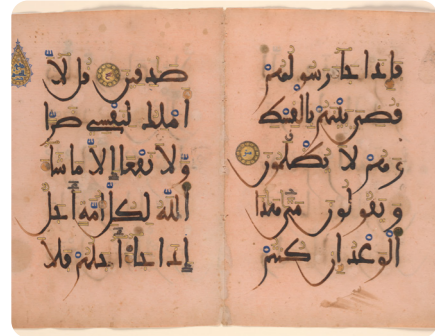 فإذا جاء رسولهم
قضي بينهم بالقسط
وهم لا يظلمون
ويقولون متى هذا
الوعد إن كنتم
صدقين قل لا
أملك لنفسي ضرا
ولا نفعا إلا ما شاء
الله لكل أمة أجل
إذا جاء أجلهم فلا